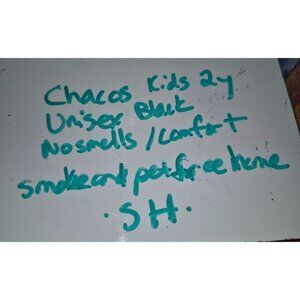 Chacos Kids 2y
Unisex Black
No smells / comfort
smoke and pet free home
. S H .